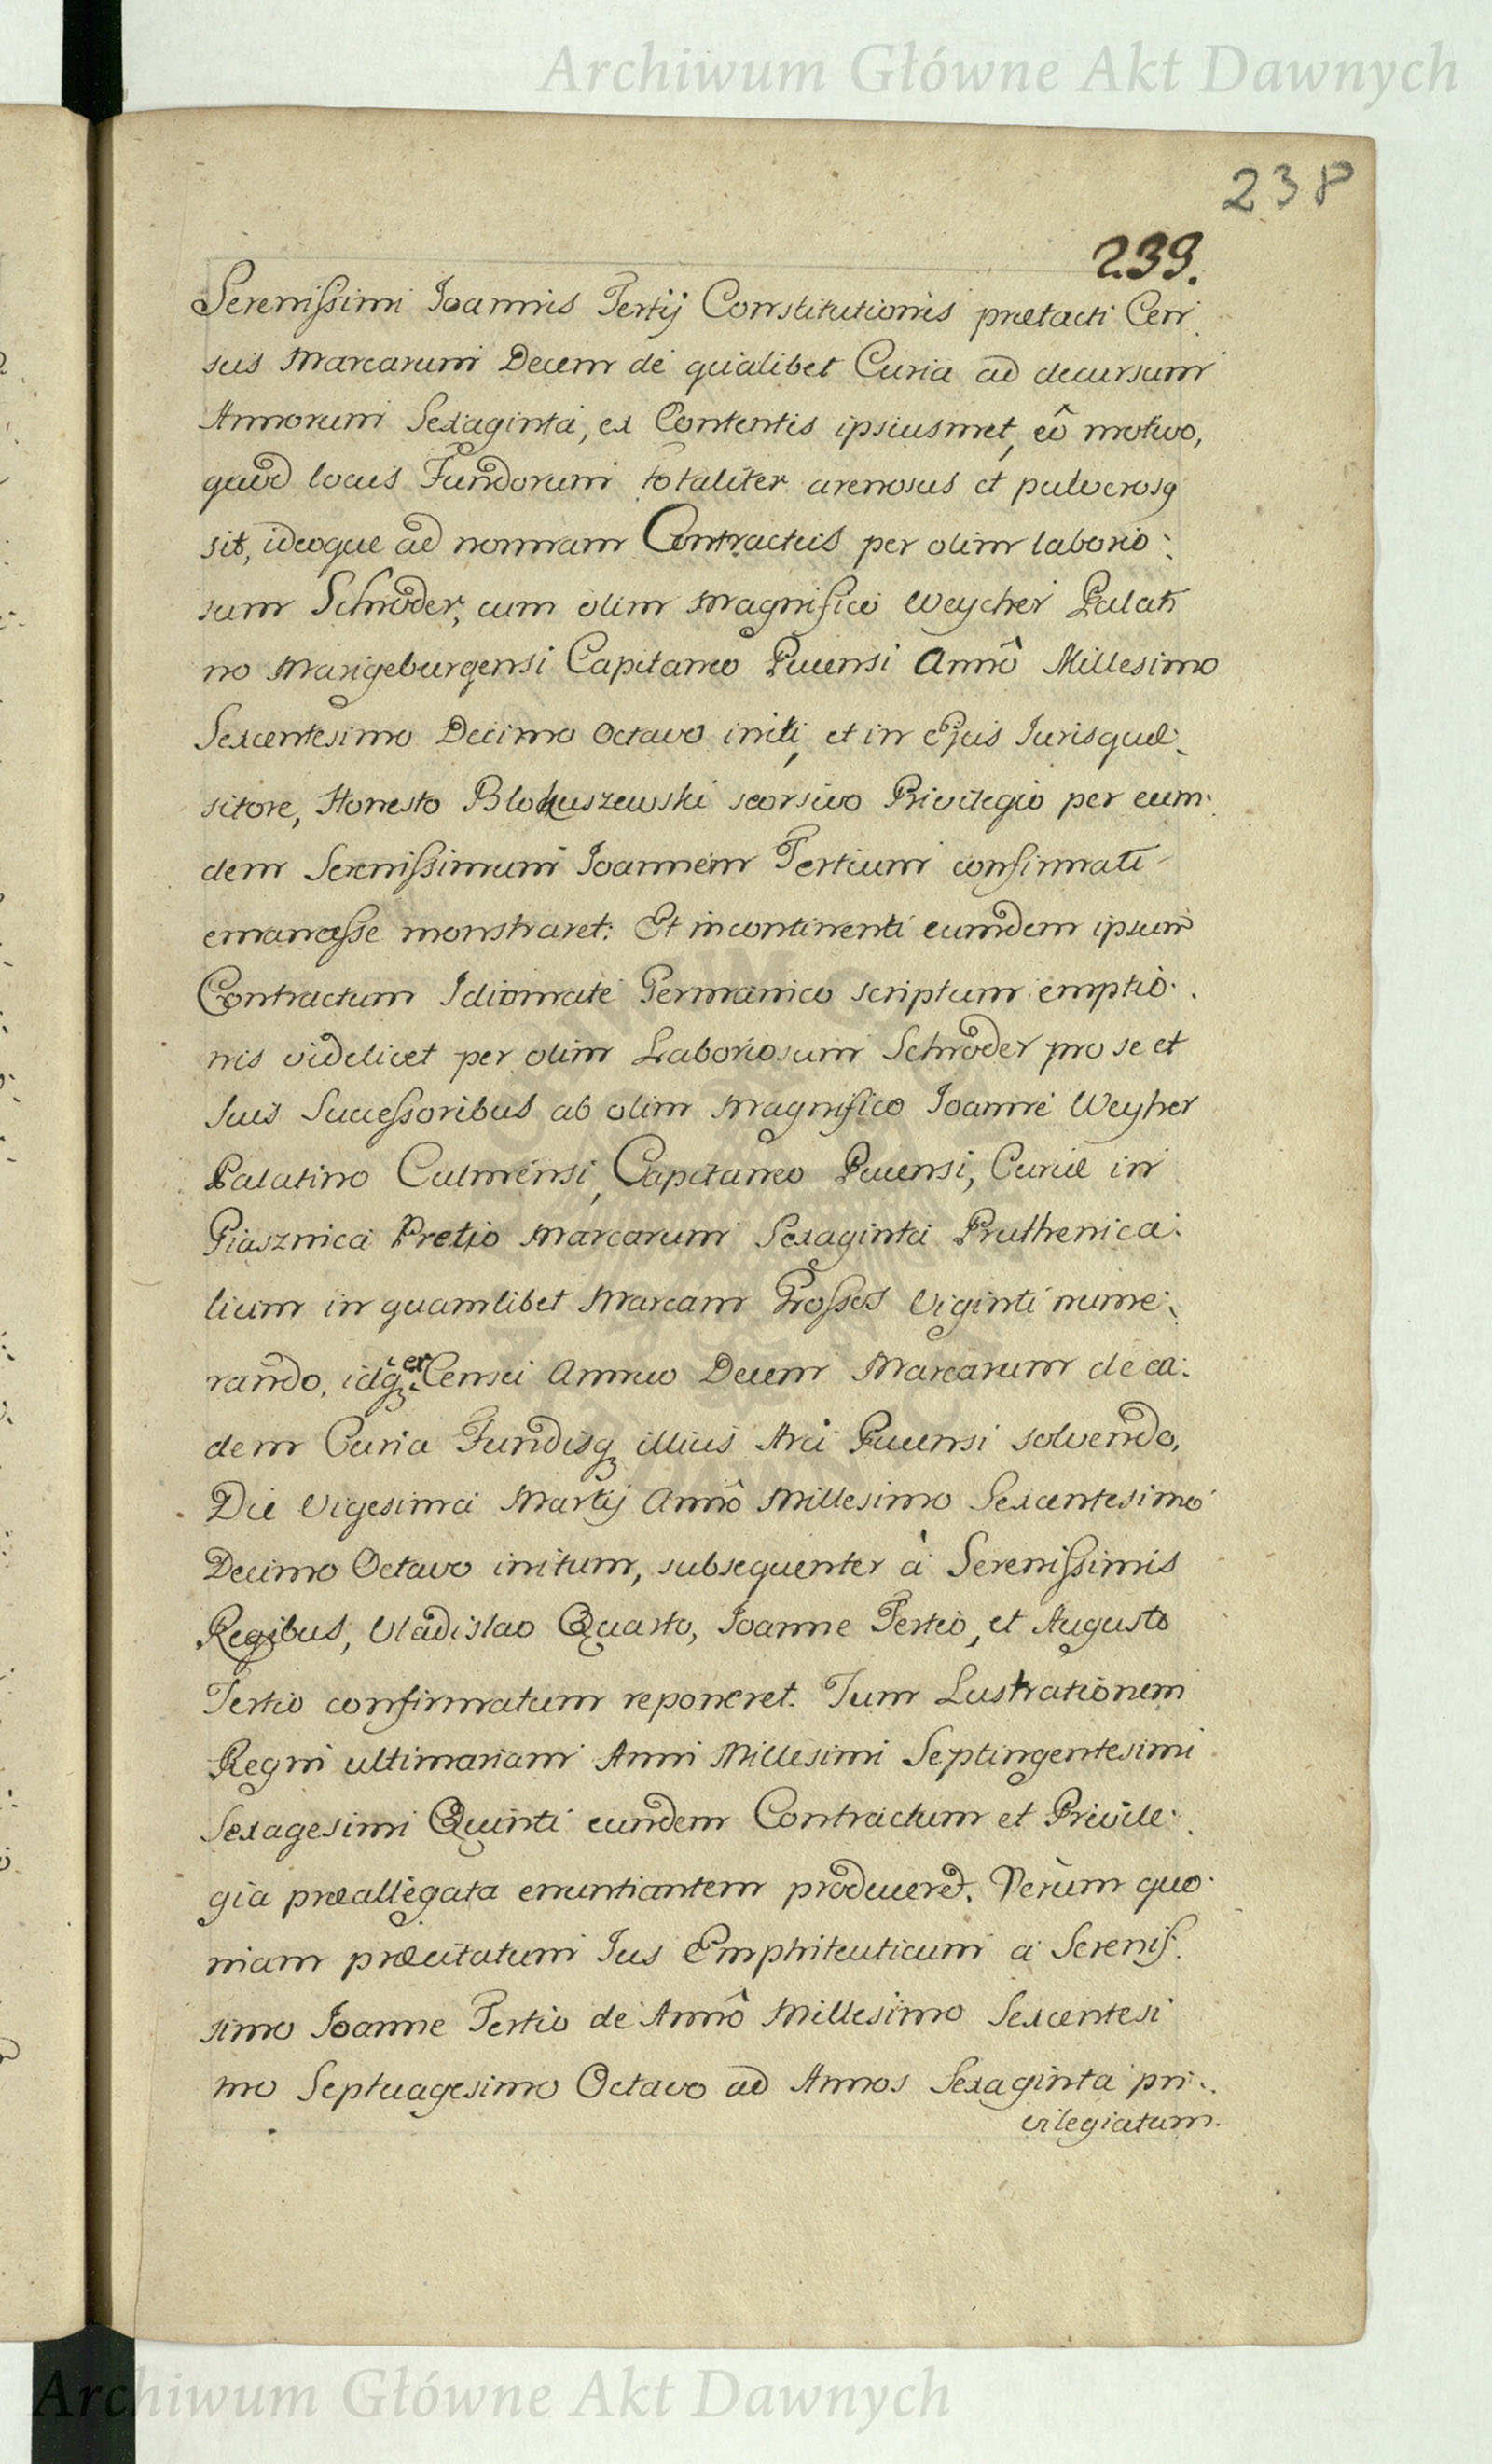 Archiwum Główne Akt Dawnych
238
239.
Serenissimi Ioannis Tertij Constitutionis prætacti Cen
sus Marcarum Decem de qualibet Curia ad decursum
Annorum Sexaginta, ex Contentis ipsiusmet, eô motivo,
quod locus Fundorum totaliter arenosus et pulverosq
sit, ideoque ad normam Contractus per olim laborio:
sum Schroder, cum olim Magnifico Weycher Palati
no Marigeburgensi Capitaneo Pucensi Annô Millesimo
Sexcentesimo Decimo Octavo initi, et in Ejus Iurisquæ
sitore, Honesto Blokuszewski seorsivo Privilegio per eum:
dem Serenissimum Ioannem Tertium confirmati
emanasse monstraret: Et incontinenti eumdem ipsum
Contractum Idiomate Germanico scriptum emptio:
nis videlicet per olim Laboriosum Schroder pro se et
suis Successoribus ab olim Magnifico Ioanne Weyher
Palatino Culmensi, Capitaneo Pucensi, Curiæ in
Piasznica Pretio Marcarum Sexaginta Pruthenica:
lium in quamlibet Marcam Grosses Viginti nume:
rando, idq er Censu Annuo Decem Marcarum de ea:
dem Curia Fundisq illius Arci Pucensi solvendo,
Die Vigesima Martij Annô Millesimo Sexcentesimo
Decimo Octavo initum, subsequenter à Serenissimis
Regibus, Vladislao Quarto, Ioanne Tertio, et Augusto
Tertio confirmatum reponeret. Tum Lustrationem
Regni ultimariam Anni Millesimi Septingentesimi
Sexagesimi Quinti eundem Contractum et Privile:
gia præallegata enuntiantem produceret. Verùm quo:
niam præcitatum Ius Emphiteuticum a Serenis:
simo Ioanne Tertio de Annô Millesimo Sexcentesi
mo Septuagesimo Octavo ad Annos Sexaginta pri:
vilegiatum.
Archiwum Główne Akt Dawnych